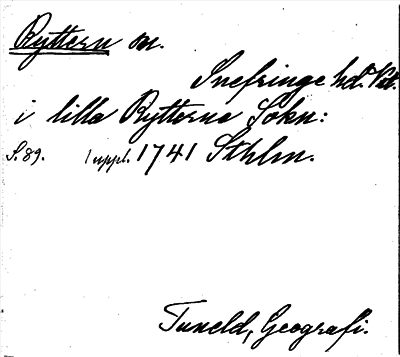 Ryttern sn.
Snefringe hd. Vstl.
i lilla Rytterne Sokn:
S. 89. 1 uppl. 1741 Sthlm.
Tuneld, Geografi.